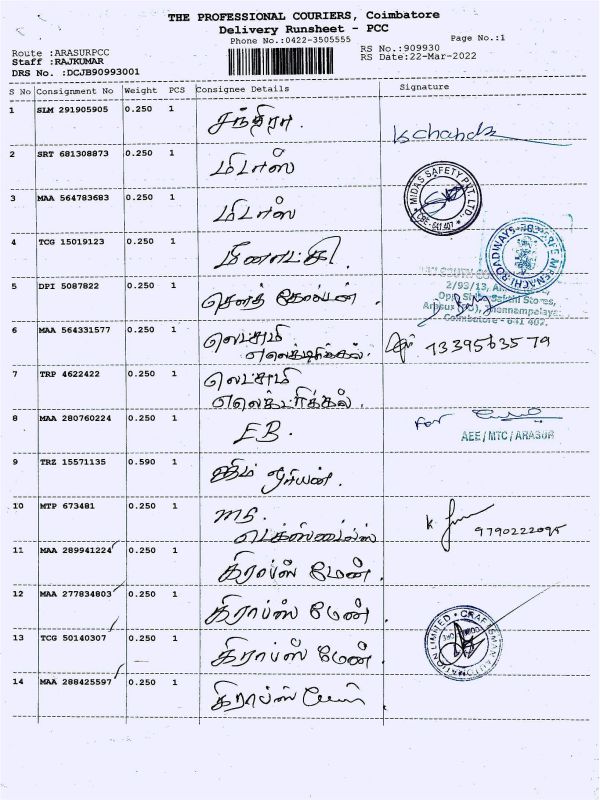 THE PROFESSIONAL COURIERS, Coimbatore
Delivery Runsheet - PCC
Phone No.:0422-3505555
Page No.:1
Route :ARASURPCC
RS No.:909930
Staff :RAJKUMAR
RS Date:22-Mar-2022
DRS No. :DCJB90993001
S No Consignment No Weight PCS Consignee Details Signature
1 SLM 291905905 0.250 1 சந்திரா.
K Chandr
2 SRT 681308873 0.250 1 மிடாஸ்
MIDAS SAFETY PVT. LTD.
CBE - 641 407
3 MAA 564783683 0.250 1 மிடாஸ்
4 TCG 15019123 0.250 1 மீனாட்சி.
5 DPI 5087822 0.250 1 சௌத் கோல்டன்.
2/93/13,
Opp. Sakthi Stores,
Coimbatore - 641 407.
6 MAA 564331577 0.250 1 லெட்சுமி
எலெக்ட்ரிக்கல்.
7339563579
7 TRP 4622422 0.250 1 லெட்சுமி
எலெக்ட்ரிக்கல்.
8 MAA 280760224 0.250 1 EB.
For
AEE / MTC / ARASUR
9 TRZ 15571135 0.590 1 ஜிம்
10 MTP 673481 0.250 1
டெக்ஸ்டைல்ஸ்
9790222095
11 MAA 289941224 0.250 1 கிராப்ஸ் மேன்.
12 MAA 277834803 0.250 1 கிராப்ஸ் மேன்.
13 TCG 50140307 0.250 1 கிராப்ஸ் மேன்.
14 MAA 288425597 0.250 1 கிராப்ஸ் மேன்